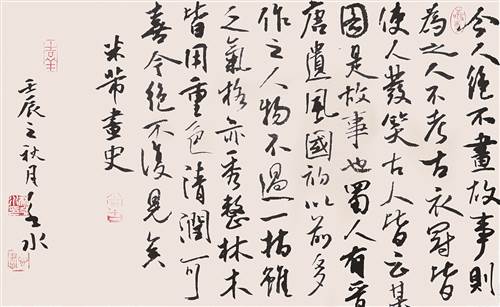 今人絕不畫故事則
為之人不考古衣冠皆
使人發笑古人皆云某
圖是故事也蜀人有晉
唐遺風國初以前多
作之人物不過一指雖
乏氣格亦秀整林木
皆用重色清潤可
喜今絕不復見矣
米芾畫史
壬辰之秋月水